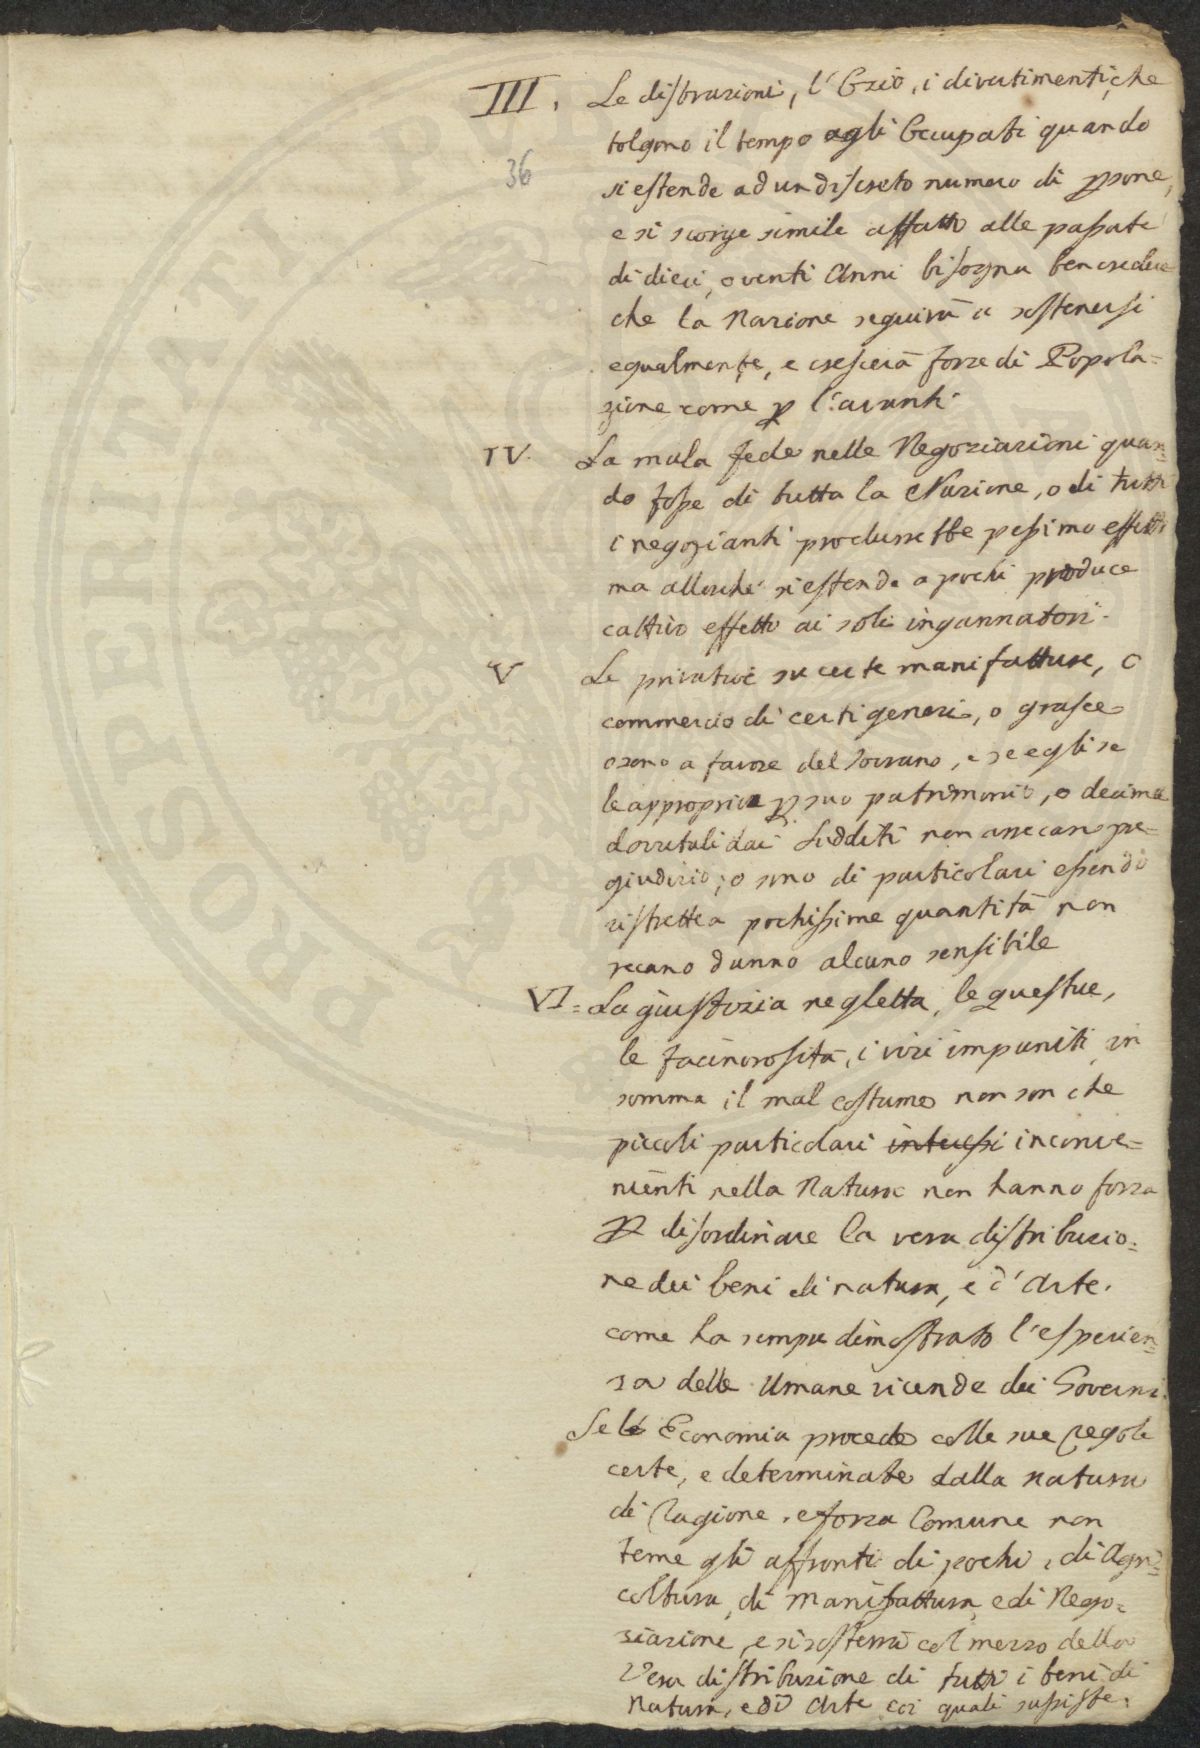 III. Le distrazioni, l'Ozio, i divertimenti, che
36
tolgono il tempo agli Occupati quando
si estende ad un discreto numero di p̱sone,
e si scorge simile affatto alle passate
di dieci, o venti Anni bisogna ben credere
che la Nazione seguirà a sostenersi
egualmente, e crescerà forze di Popola=
zione come p̱ l'avanti.
IV. La mala fede nelle Negoziazioni quan=
do fosse di tutta la Nazione, o di tutti
i negozianti produrrebbe pessimo effetto
ma allorché si estende a pochi produce
cattivo effetto ai soli ingannatori.
V Le privative su certe manifatture, o
commercio di certi generi, o grasce
o sono a favore del Sovrano, e se egli se
le appropria p̱ suo patrimonio, o decima
dovutali dai Sudditi non arrecan pre=
giudizio; o sono di particolari essendo
ristrette a pochissime quantità non
recano danno alcuno sensibile
VI= La giustizia negletta, le questue,
le facinorosità, i vizi impuniti in
somma il mal costume non son che
piccoli particolari interessi inconve=
nienti nella Natura non hanno forza
p̱ disordinare la vera distribuzio=
ne dei beni di natura, e d'Arte.
come ha sempre dimostrato l'esperien=
za delle Umane vicende dei Governi.
Se le Economia procede colle sue regole
certe, e determinate dalla natura
di ragione, e forza Comune non
teme gli affronti di pochi, di Agri=
coltura, di Manifattura, e di Nego=
ziazione, e si sosterrà col mezzo della
Vera distribuzione di tutti i beni di
Natura, e di Arte coi quali sussiste.